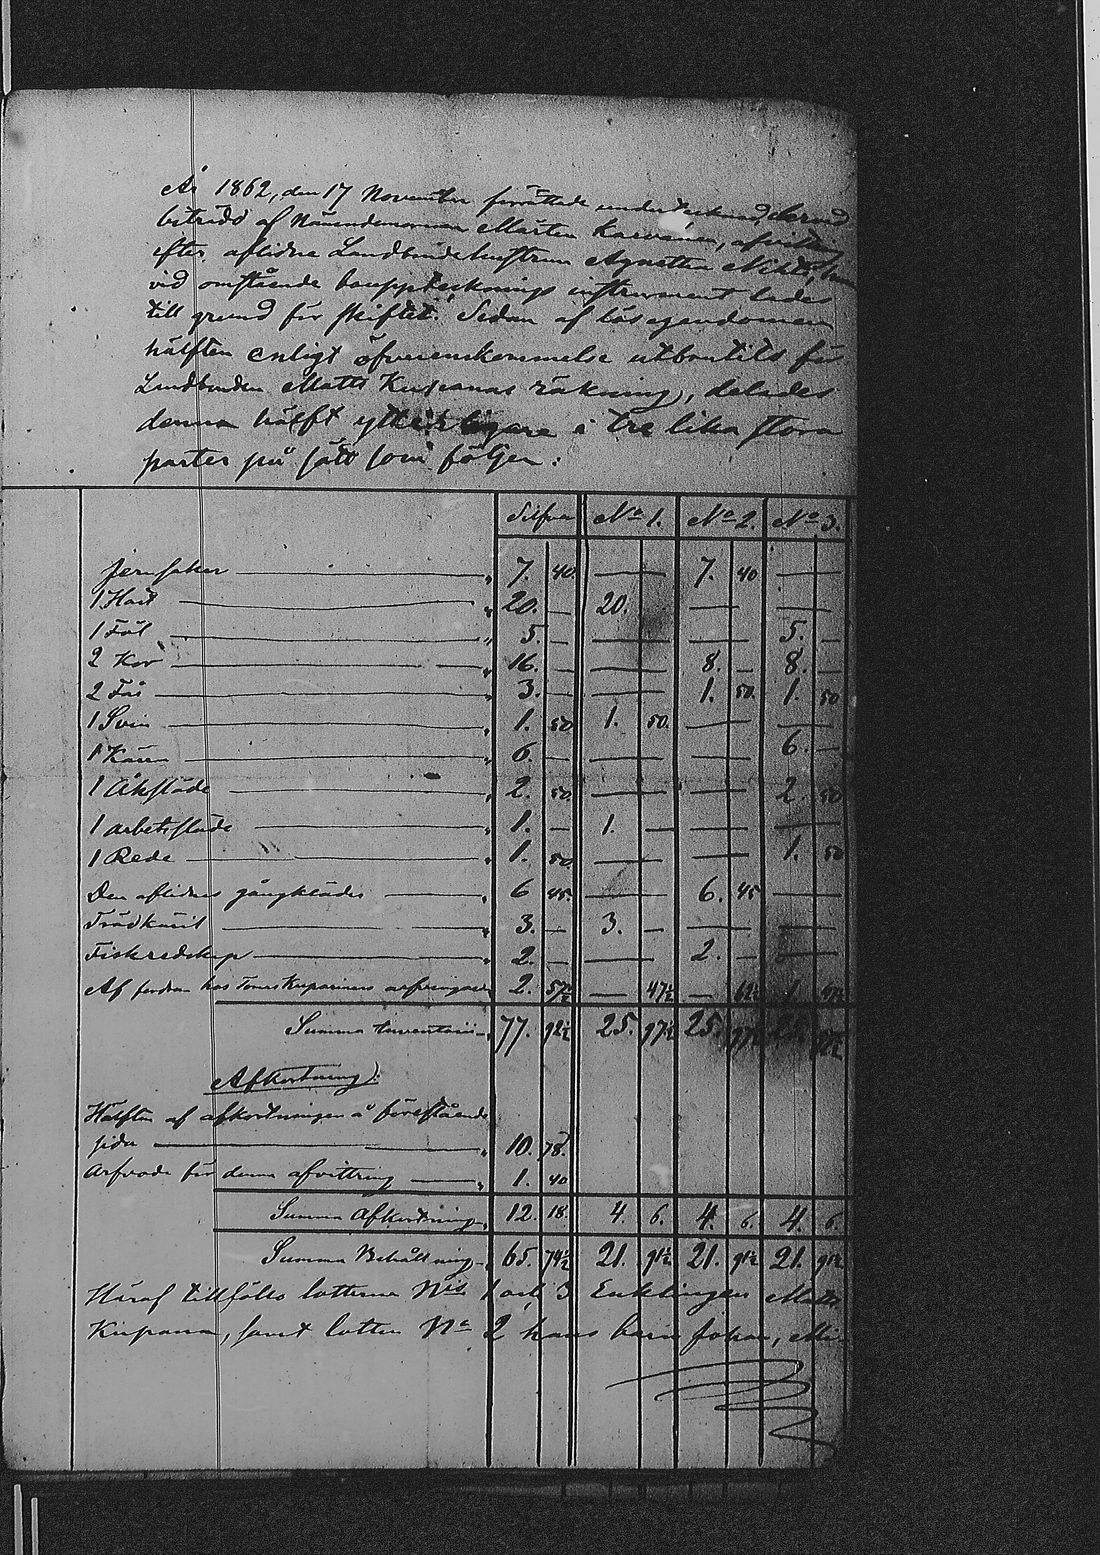 År 1862, den 17 November förrättade undertecknad, dervid
biträdd af Nämndemannen Mårten Karvanen, afvittring
efter aflidna Landbondehustrun Agnetha
vid omstående bouppteknings instrument lades
till grund för skiftet. Sedan af lösegendomen
hälften enligt öfverenskommelse utbrutits för
Landbonden Matts Kuparias räkning, delades
denna hälft ytterligare i tre lika stora
parter på sätt som följer:
Silfver No 1. No 2. No 3.
Jernsaker " 7. 40. — 7. 40 —
1 Häst " 20. — 20. — —
1 Föl " 5. — — — 5. —
2 Kor " 16. — — 8. — 8. —
2 Får " 3. — — 1. 50. 1. 50
1 Svin " 1. 50 1. 50. — —
1 Kärra " 6. — — — 6. —
1 Åksläde " 2. 50. — — 2. 50
1 arbetssläde " 1. — 1. — — —
1 Rede " 1. 50 — — 1. 50
Den aflidnes gångkläder " 6 45. — 6. 45 —
Trädkäril " 3. — 3. — — —
Fiskredskap " 2. — — 2. — —
Af fordran hos Tomas Kuparinens arfvingar 2. 57½ — 47½ — 62½ 1. 47½
Summa Inventarii 77. 92½ 25. 97½ 25. 97½ 25. 97½
Afkortning:
Hälften af afkortningen å förestående
sida " 10. 78.
Arfvode för denna afvittring " 1. 40
Summa Afkortning 12. 18. 4. 6. 4. 6. 4. 6.
Summa Behållning 65. 74½ 21. 91½ 21. 91½ 21. 91½
Häraf tillföllo lotterne Nis 1 och 3 Enklingen Matts
Kuparia, samt lotten No 2 hans barn Johan,